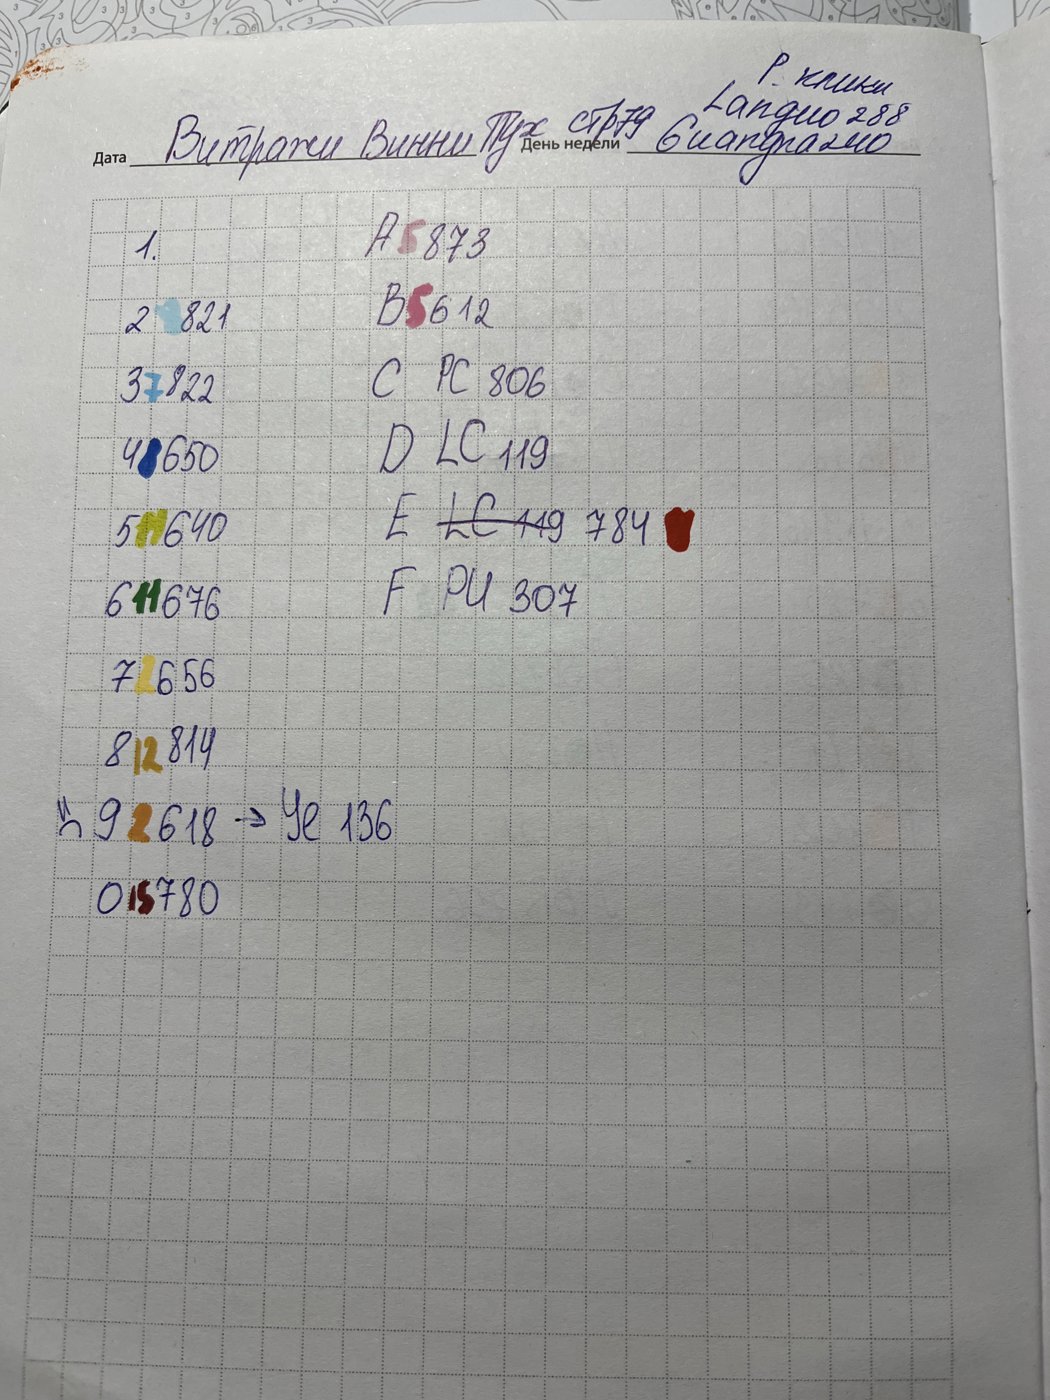 Р. клики
Ландио 288
Дата Витражи Винни Пух стр 79 День недели Гиандра 240
1. A 5 873
2 821 B 5 612
3 7 822 C PC 806
4 650 D LC 119
5 11 640 E LC 119 784
6 11 676 F PU 307
7 2 656
8 12 814
9 2 618 → Ye 136
0 15 780